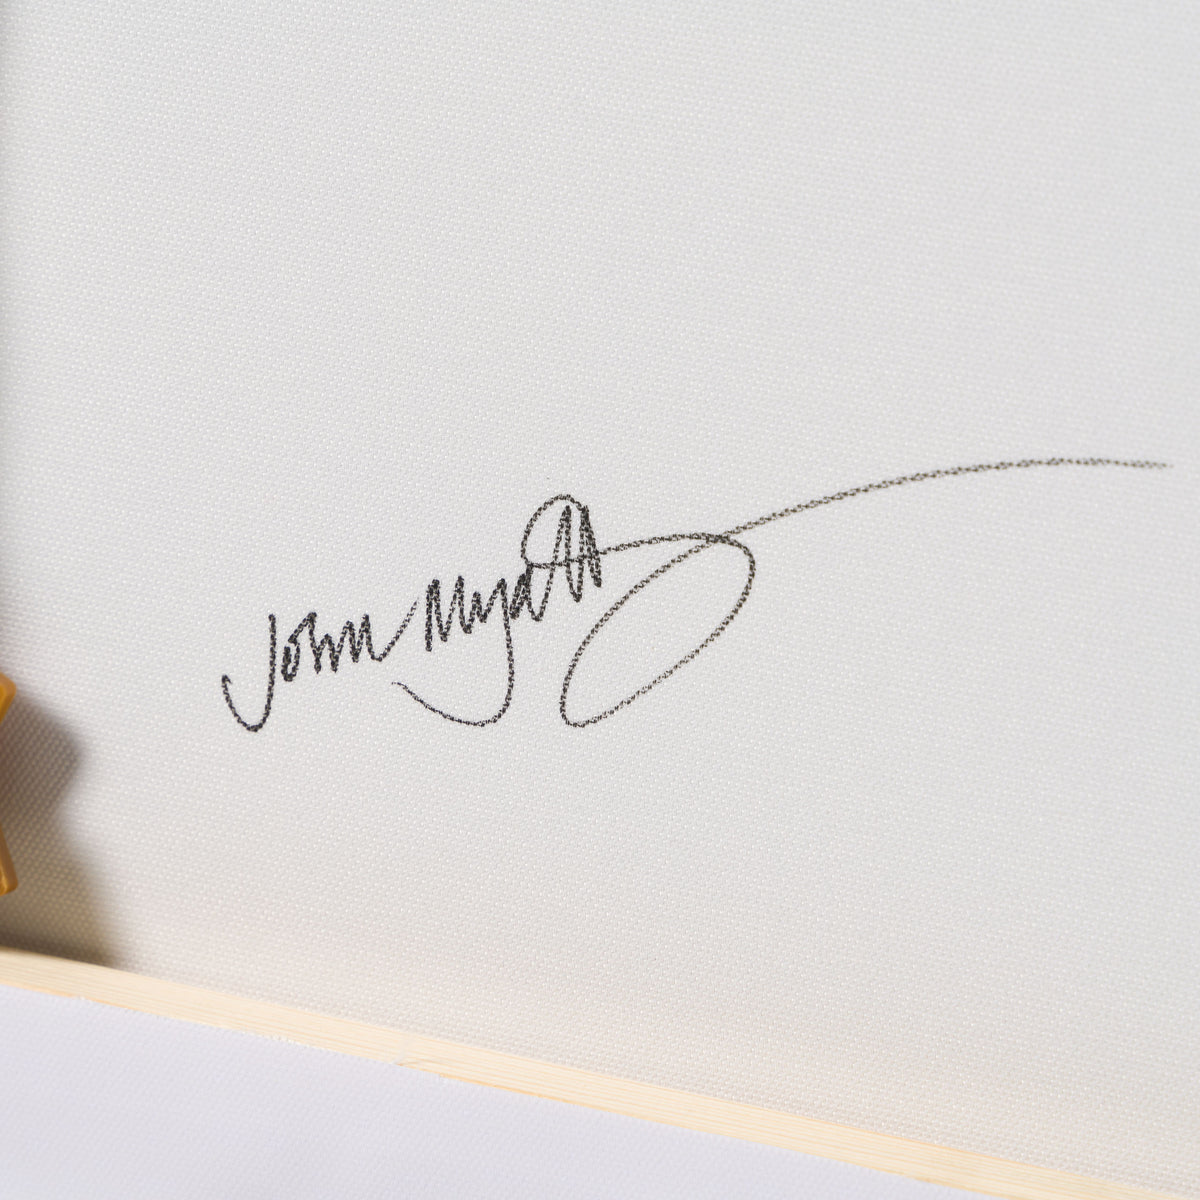 John Myatt